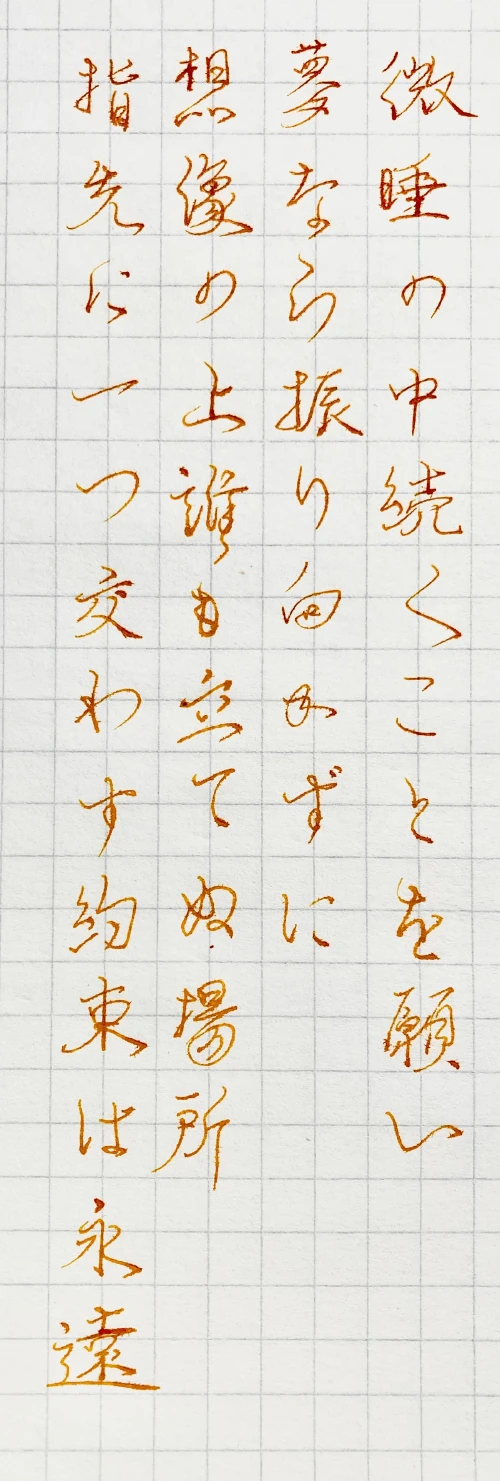 微睡の中続くことを願い
夢なら振り向かずに
想像の上誰も立てぬ場所
指先に一つ交わす約束は永遠